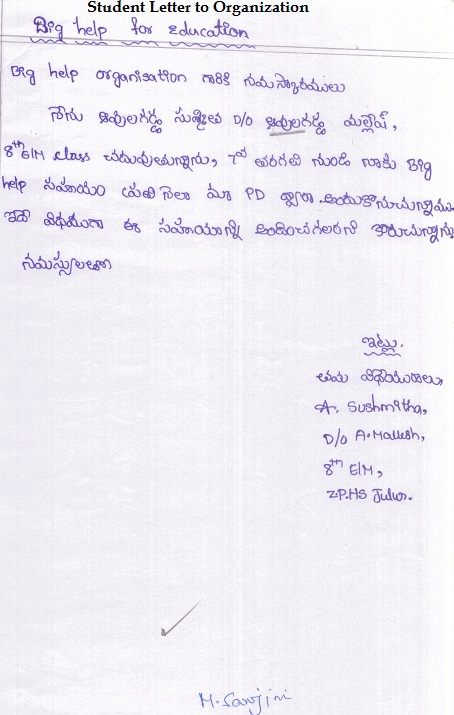 Student Letter to Organization
Big help for Education
Big help organisation గారికి నమస్కారములు
నేను ఆవులగడ్డ సుష్మిత D/O ఆవులగడ్డ మల్లేష్,
8th E/M class చదువుతున్నాను, 7వ తరగతి నుండి నాకు Big
help సహాయం ప్రతి నెలా మా PD ద్వారా అందుకొనుచున్నాము
ఇదే విధముగా ఈ సహాయాన్ని అందించగలరని కోరుచున్నాను
నమస్సులతో
ఇట్లు.
తమ విధేయురాలు,
A. Sushmitha,
D/o A. Mallesh,
8th E/M,
Z.P.HS Julur.
M. Sarojini